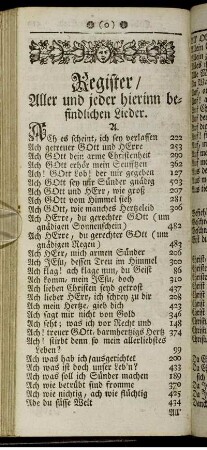 (o)
Register/
Aller und jeder hierinn be-
findlichen Lieder.
A.
Ach es scheint, ich sey verlassen 222
Ach getreuer GOtt und HErre 253
Ach GOtt dein arme Christenheit 290
Ach GOtt erhör mein Seufftzen 362
Ach! GOtt Lob! der mir gegeben 127
Ach GOtt sey mir Sünder gnädig 523
Ach GOtt und HErr, wie groß 207
Ach GOtt vom Himmel sieh 281
Ach GOtt, wie manches Hertzeleid 306
Ach HErre, du gerechter GOtt (um
gnädigen Sonnenschein) 482
Ach HErre, du gerechter GOtt (um
gnädigen Regen) 483
Ach HErr, mich armen Sünder 206
Ach JEsu, dessen Treu im Himmel 300
Ach klag! ach klage nun, du Geist 86
Ach komm, mein JEsu, doch 310
Ach lieben Christen seyd getrost 437
Ach lieber HErr, ich schrey zu dir 208
Ach mein Hertze, gieb dich 301
Ach sagt mir nicht von Gold 346
Ach seht, was ich vor Recht und 148
Ach! treuer GOtt, barmhertzigs Hertz 374
Ach! stirbt denn so mein allerliebstes
Leben? 99
Ach was hab ich ausgerichtet 200
Ach was ist doch unser Leb'n? 434
Ach was soll ich Sünder machen 189
Ach wie betrübt sind fromme 370
Ach wie nichtig, ach wie flüchtig 425
Ade du süsse Welt 434
All'